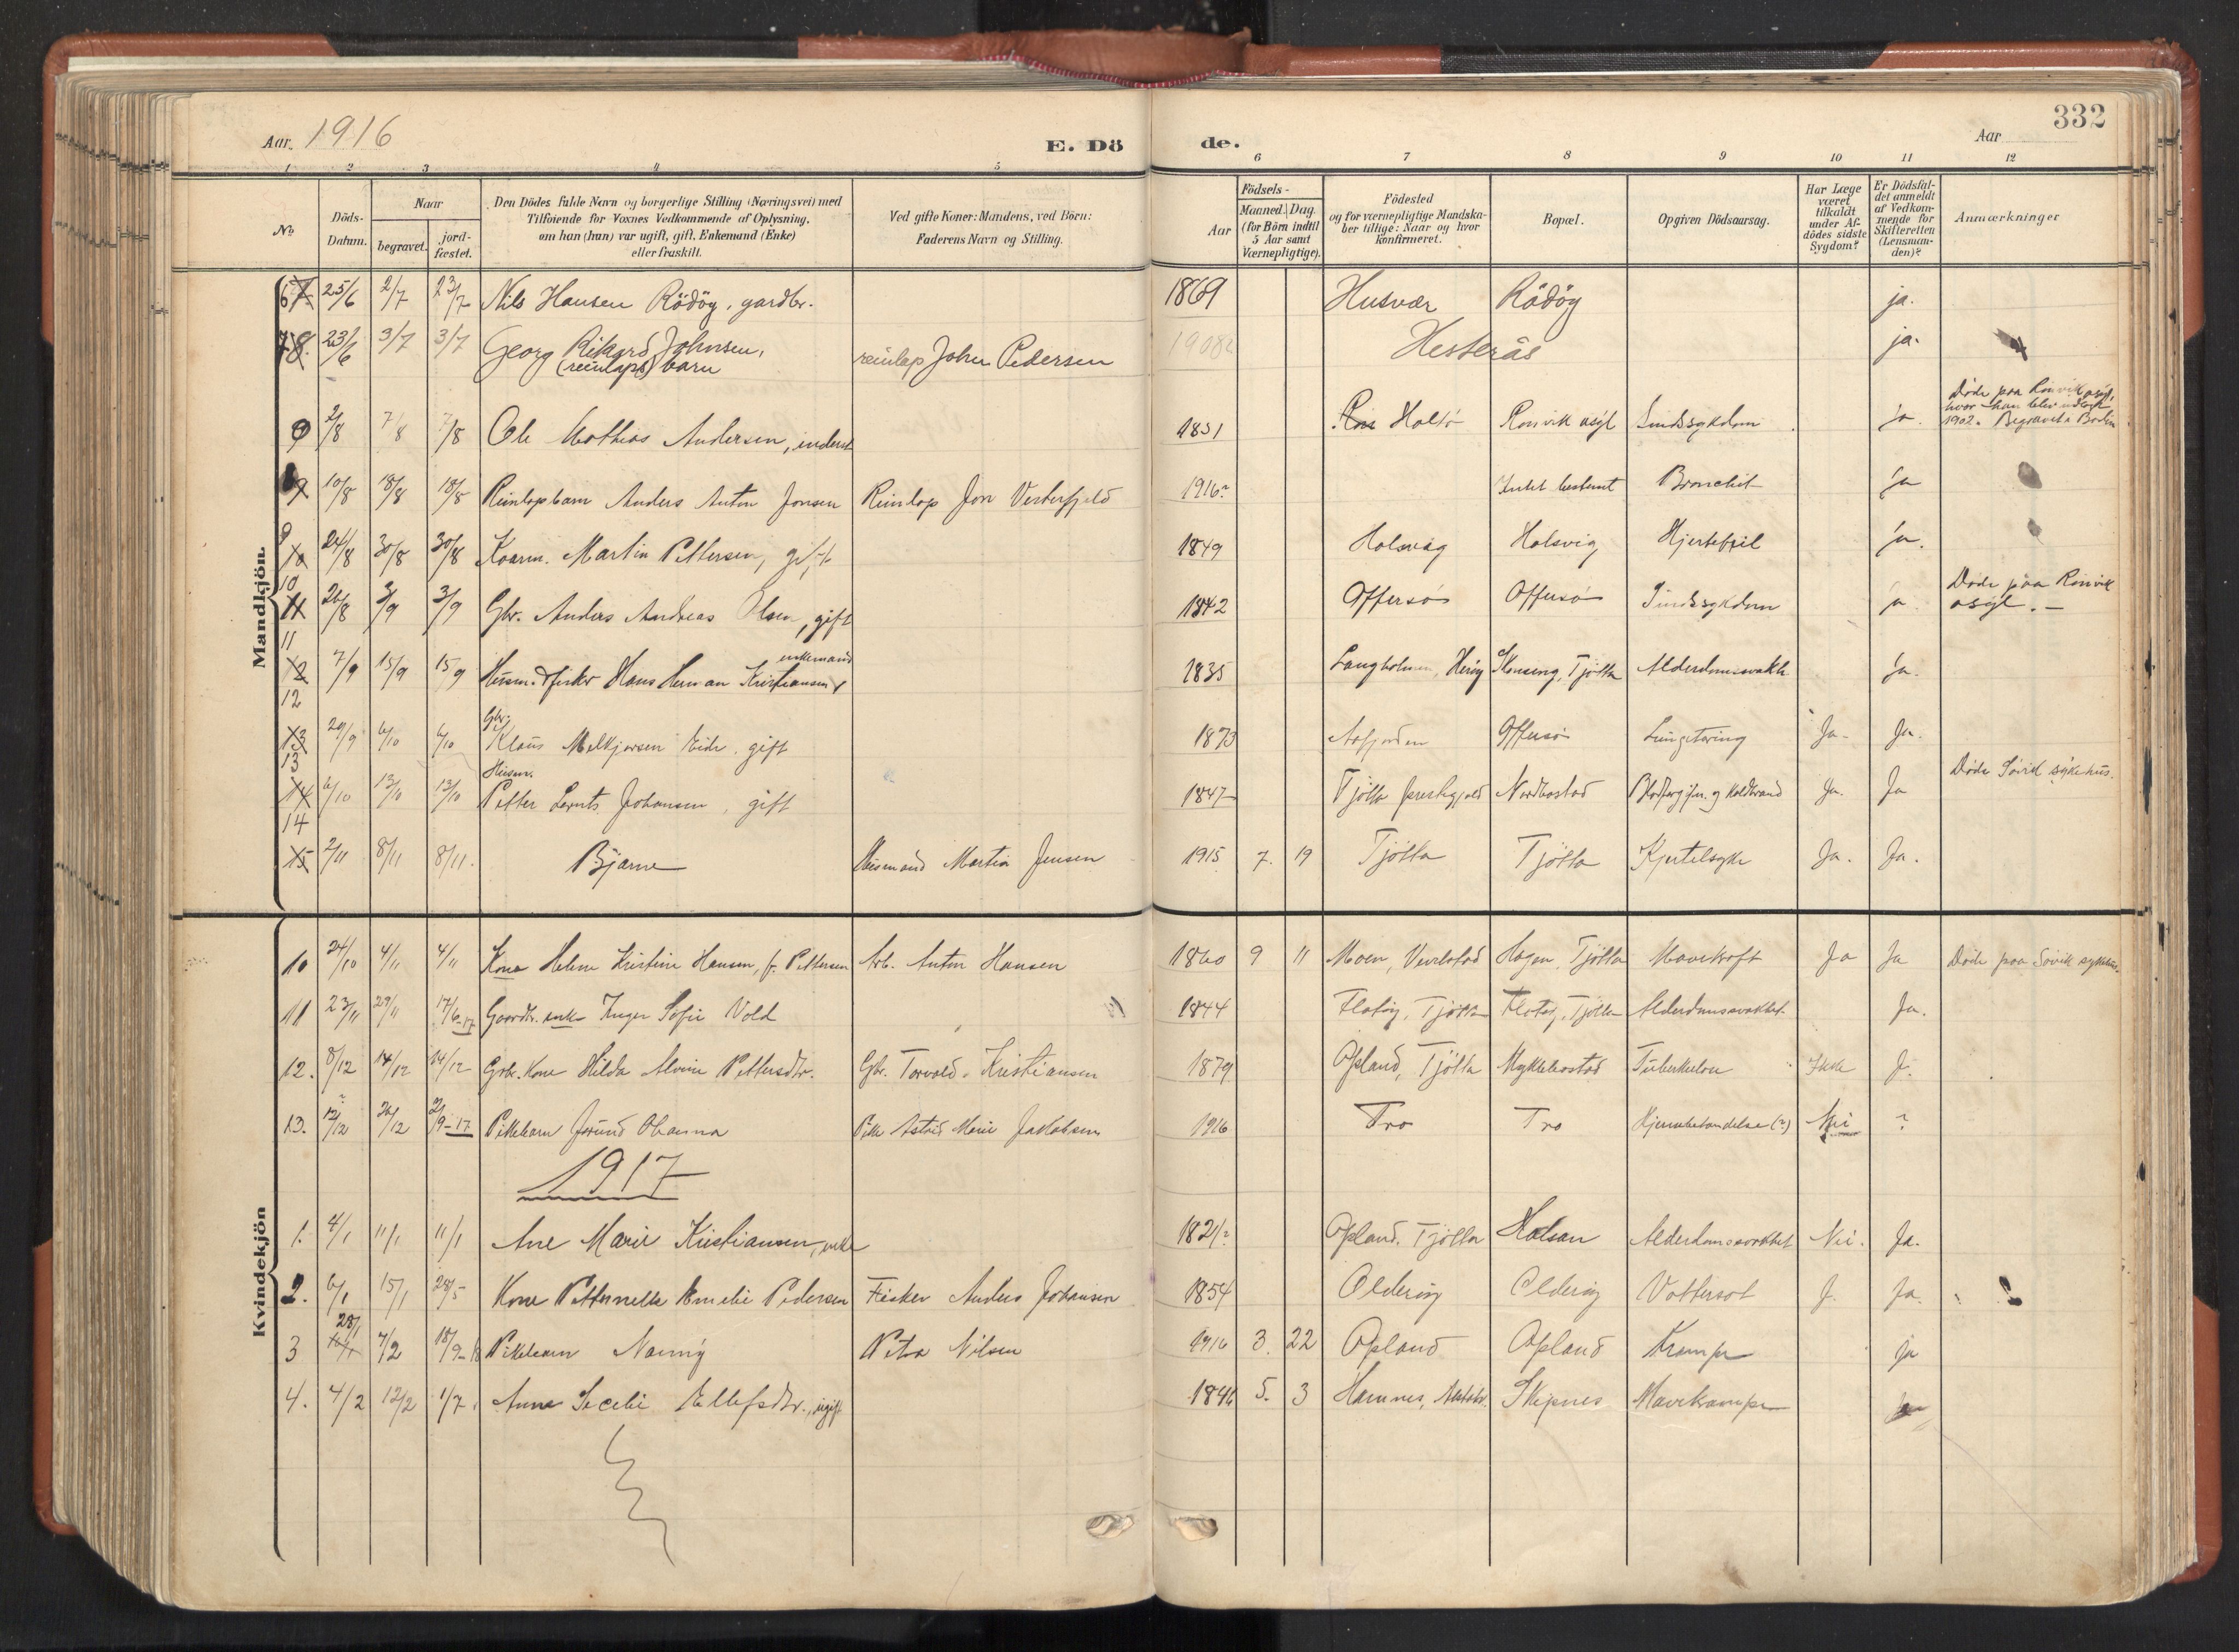 332
Aar. 1916
E. Dö
de.
Aar
1 2 3 4 5 6 7 8 9 10 11 12
No
Döds-Datum.
Naar
begravet.
jord-fæstet.
Den Dödes fulde Navn og borgerlige Stilling (Næringsvei) med
Tilföiende for Voxnes Vedkommende af Oplysning,
om han (hun) var ugift, gift, Enkemand (Enke)
eller fraskilt.
Ved gifte Koner: Mandens, ved Börn:
Faderens Navn og Stilling.
Födsels-
Aar
Maaned. Dag
(for Börn indtil
5 Aar samt
Værnepligtige).
Födested
og for værnepligtige Mandska-
ber tillige: Naar og hvor
konfirmeret.
Bopæl.
Opgiven Dödsaarsag.
Har Læge
været
tilkaldt
under Af-
dödes sidste
Sygdom?
Er Dödsfal-
det anmeldt
af Vedkom-
mende for
Skifteretten
(Lensman-
den)?
Anmærkninger
Mandkjön.
6 25/6 2/7 23/7 Nils Hansen Rödöy, gardbr. 1869 Husvær Rödöy ja.
7 8. 23/6 3/7 3/7 Georg Rikard Johnsen, (reinlaps) barn reinlap John Pedersen 1908 Hesteräs ja.
9 2/8 7/8 7/8 Ole Mathias Andersen, inderst 1831 Holtö Rønvik asyl Sindssykdom ja. Døde paa Rønvik asyl, hvor han blev indlagt 1902. Begravet i Bodin
9 10/8 18/8 18/8 Reinlapbarn Anders Anton Jonsen Reinlap Jon Vesterfjeld 1916? Intet bestemt Bronchit ja
9 10 24/8 30/8 30/8 Kaarm. Martin Pettersen, gift 1849 Holsvåg Holsvig Hjertefeil ja.
10 11 26/8 3/9 3/9 Gbr. Anders Andreas Olsen, gift 1842 Offersø Offersø Sindssykdom ja Døde paa Rønvik asyl. –
11 12 7/9 15/9 15/9 Husm. & fisker Hans Herman Kristiansen enkemand 1835 Langholmen, Herøy Stenseng, Tjøtta Alderdomssvakh. ja.
12 13 29/9 6/10 6/10 Gbr. Klaus Melkjorsen Eide, gift 1873 Aafjorden Offersø Lungetæring Ja. Ja.
13 14 6/10 13/10 13/10 Husm. Petter Lornts Johansen, gift 1847 Tjøtta prestegjeld Nordbostad Blodforgiftn. og Koldbrand Ja. Ja Døde Søvik sykehus.
14 15 2/11 8/11 8/11. Bjarne Husmand Martin Jensen 1915 7. 19 Tjötta Tjötta Kjertelsyke Ja. Ja.
Kvindekjön
10 24/10 4/11 4/11 Kone Helene Kristine Hansen, f. Pettersen Arb. Anton Hansen 1860 9 11 Moen, Vevelstad Hagen, Tjøtta Mavekræft Ja Ja Døde paa Søvik sykehus.
11 23/11 29/11 17/6-17 Gaardbr. enke Inger Sofie Vold 1844 Flatøy, Tjøtta Flatøy, Tjøtta Alderdomssvakhet Ja.
12. 8/12 14/12 14/12 Grbr. Kone Hilda Alvine Pettersdtr. Gbr. Torvald Kristiansen 1879 Opland, Tjøtta Mykkelbostad Tuberkulose Ikke J.
13. 12/12 26/12 2/9-17 Pikebarn Jorund Ohanna Pike Astrid Marie Jakobsen 1916 Tro Tro Hjernebetændelse (?) Nei ?
1917
1. 4/1 11/1 11/1 Ane Marie Kristiansen, enke 1821? Opland, Tjøtta Holsan Alderdomssvakhet Nei. Ja.
2. 6/1 15/1 28/5 Kone Petternelle Emelie Pedersen Fisker Anders Johansen 1854 Olderøy Olderøy Vattersot J. Ja.
3 28/1 7/2 18/9-18 Pikebarn Nanny Petra Nilsen 1916 3. 22 Opland Opland Krampe ja
4. 4/2 12/2 1/7 Anna Secelie Ellefsdtr., ugift 1846 5. 3 Hamnes, Skipnes Mavekrampe ja